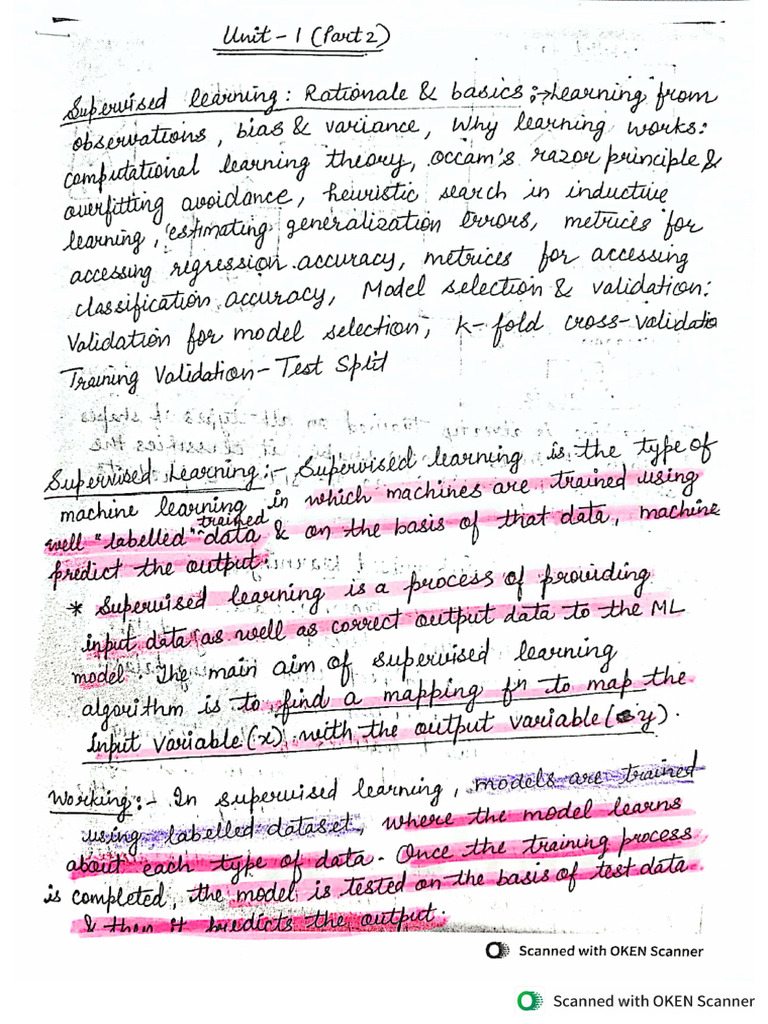 Unit - 1 (Part 2)
Supervised learning : Rationale & basics :→ Learning from
observations, bias & variance, Why learning works:
computational learning theory, occam's razor principle &
overfitting avoidance, heuristic search in inductive
learning, estimating generalization errors, metrices for
accessing regression accuracy, metrices for accessing
classification accuracy, Model selection & validation:
Validation for model selection, k-fold cross-validatio
Training Validation - Test Split
Supervised Learning :- Supervised learning is the type of
machine learning in which machines are trained using
trained
well "labelled" data & on the basis of that data, machine
predict the output.
* Supervised learning is a process of providing
input data as well as correct output data to the ML
model. The main aim of supervised learning
algorithm is to find a mapping fⁿ to map the
input variable (x) with the output variable (y).
Working :- In supervised learning, models are trained
using labelled dataset, where the model learns
about each type of data. Once the training process
is completed, the model is tested on the basis of test data
& then it predicts the output.
Scanned with OKEN Scanner
Scanned with OKEN Scanner